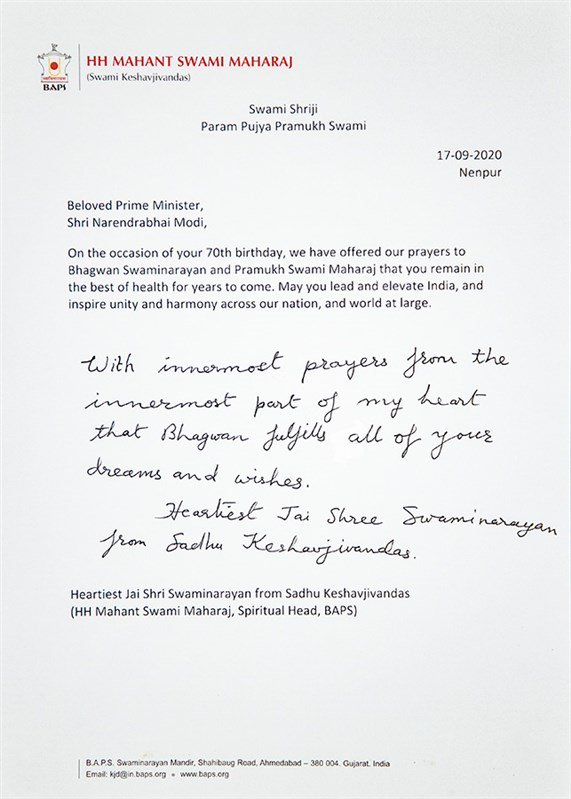 HH MAHANT SWAMI MAHARAJ
(Swami Keshavjivandas)
BAPS
Swami Shriji
Param Pujya Pramukh Swami
17-09-2020
Nenpur
Beloved Prime Minister,
Shri Narendrabhai Modi,
On the occasion of your 70th birthday, we have offered our prayers to
Bhagwan Swaminarayan and Pramukh Swami Maharaj that you remain in
the best of health for years to come. May you lead and elevate India, and
inspire unity and harmony across our nation, and world at large.
With innermost prayers from the
innermost part of my heart
that Bhagwan fulfills all of your
dreams and wishes.
Heartiest Jai Shree Swaminarayan
from Sadhu Keshavjivandas.
Heartiest Jai Shri Swaminarayan from Sadhu Keshavjivandas
(HH Mahant Swami Maharaj, Spiritual Head, BAPS)
B.A.P.S. Swaminarayan Mandir, Shahibaug Road, Ahmedabad – 380 004. Gujarat. India
Email: kjd@in.baps.org • www.baps.org